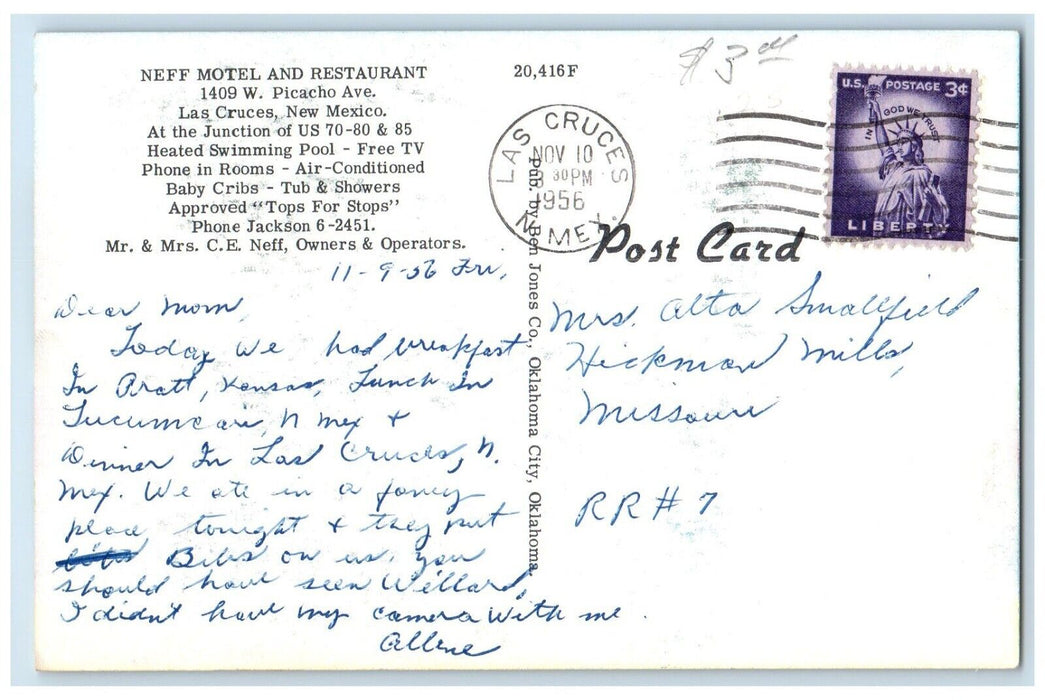 NEFF MOTEL AND RESTAURANT
1409 W. Picacho Ave.
Las Cruces, New Mexico.
At the Junction of US 70-80 & 85
Heated Swimming Pool - Free TV
Phone in Rooms - Air-Conditioned
Baby Cribs - Tub & Showers
Approved "Tops For Stops"
Phone Jackson 6-2451.
Mr. & Mrs. C.E. Neff, Owners & Operators.
20,416F
$3
LAS CRUCES
NOV 10
30 PM
1956
N. MEX.
U.S. POSTAGE 3¢
IN GOD WE TRUST
LIBERTY
Post Card
Pub. by Ben Jones Co., Oklahoma City, Oklahoma.
11-9-56 Fri,
Dear Mom,
Today we had breakfast
In Pratt, Kansas, Lunch In
Tucumcari, N Mex &
Dinner In Las Cruces, N.
Mex. We ate in a fancy
place tonight & they put
Bibs on us. you
should have seen Willard,
I didn't have my camera with me.
Allene
Mrs. Alta Smallfield
Hickman Mills,
Missouri
RR # 7